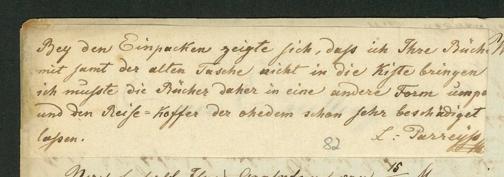 Bey den Einpacken zeigte sich, daß ich Ihre Büch
mit samt der alten Tasche nicht in die Kiste bringen
ich mußte die Bücher daher in eine andere Form umpa
und den Reise-Koffer der ehedem schon sehr beschädiget
laßen.
L: Parreyß
82
15